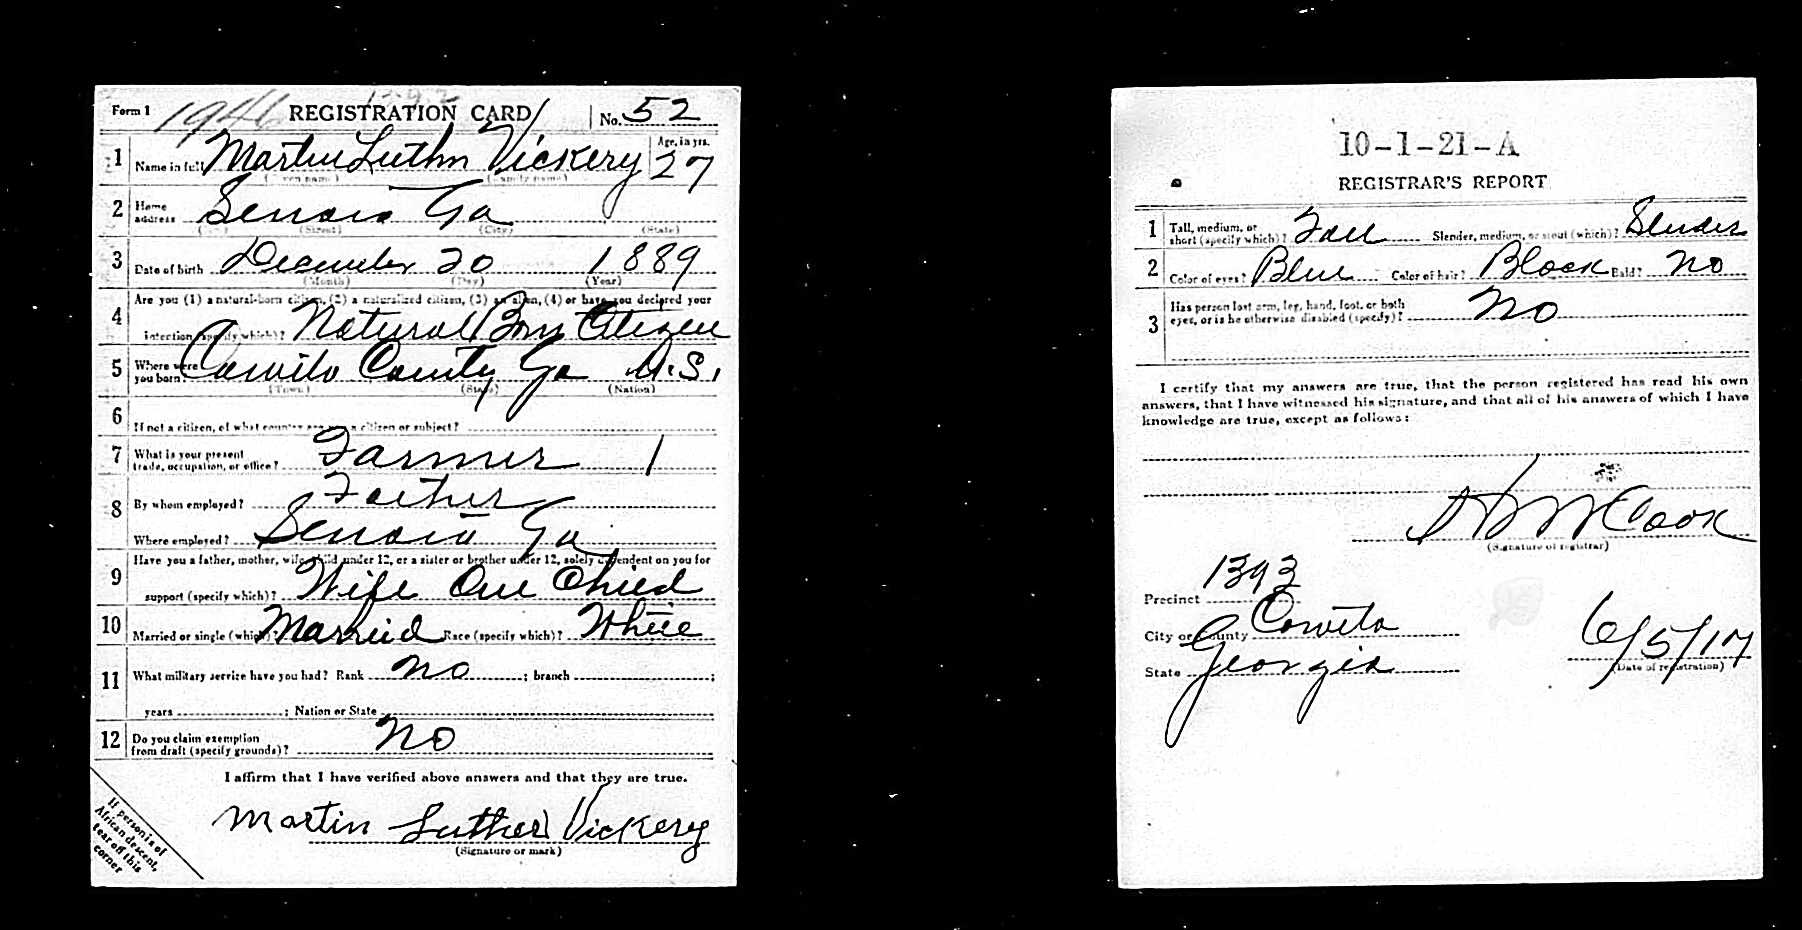 Form 1 1946 REGISTRATION CARD No. 52
1 Name in full Martin Luther Vickery Age, in yrs. 27
(Given name) (Family name)
2 Home address Senoia Ga
(No.) (Street) (City) (State)
3 Date of birth December 20 1889
(Month) (Day) (Year)
4 Are you (1) a natural-born citizen, (2) a naturalized citizen, (3) an alien, (4) or have you declared your
intention (specify which)? Natural Born Citizen
5 Where were you born? Coweta County Ga U.S.
(Town) (State) (Nation)
6 If not a citizen, of what country are you a citizen or subject?
7 What is your present trade, occupation, or office? Farmer 1
8 By whom employed? Father
Where employed? Senoia Ga
9 Have you a father, mother, wife, child under 12, or a sister or brother under 12, solely dependent on you for
support (specify which)? Wife One Child
10 Married or single (which)? Married Race (specify which)? White
11 What military service have you had? Rank No ; branch ;
years ; Nation or State
12 Do you claim exemption from draft (specify grounds)? No
I affirm that I have verified above answers and that they are true.
Martin Luther Vickery
(Signature or mark)
If person is of
African descent,
tear off this
corner
10-1-21-A
REGISTRAR'S REPORT
1 Tall, medium, or short (specify which)? Tall Slender, medium, or stout (which)? Slender
2 Color of eyes? Blue Color of hair? Black Bald? No
3 Has person lost arm, leg, hand, foot, or both
eyes, or is he otherwise disabled (specify)? No
I certify that my answers are true, that the person registered has read his own
answers, that I have witnessed his signature, and that all of his answers of which I have
knowledge are true, except as follows:
Cook
(Signature of registrar)
Precinct 1393
City or County Coweta
State Georgia
6/5/17
(Date of registration)